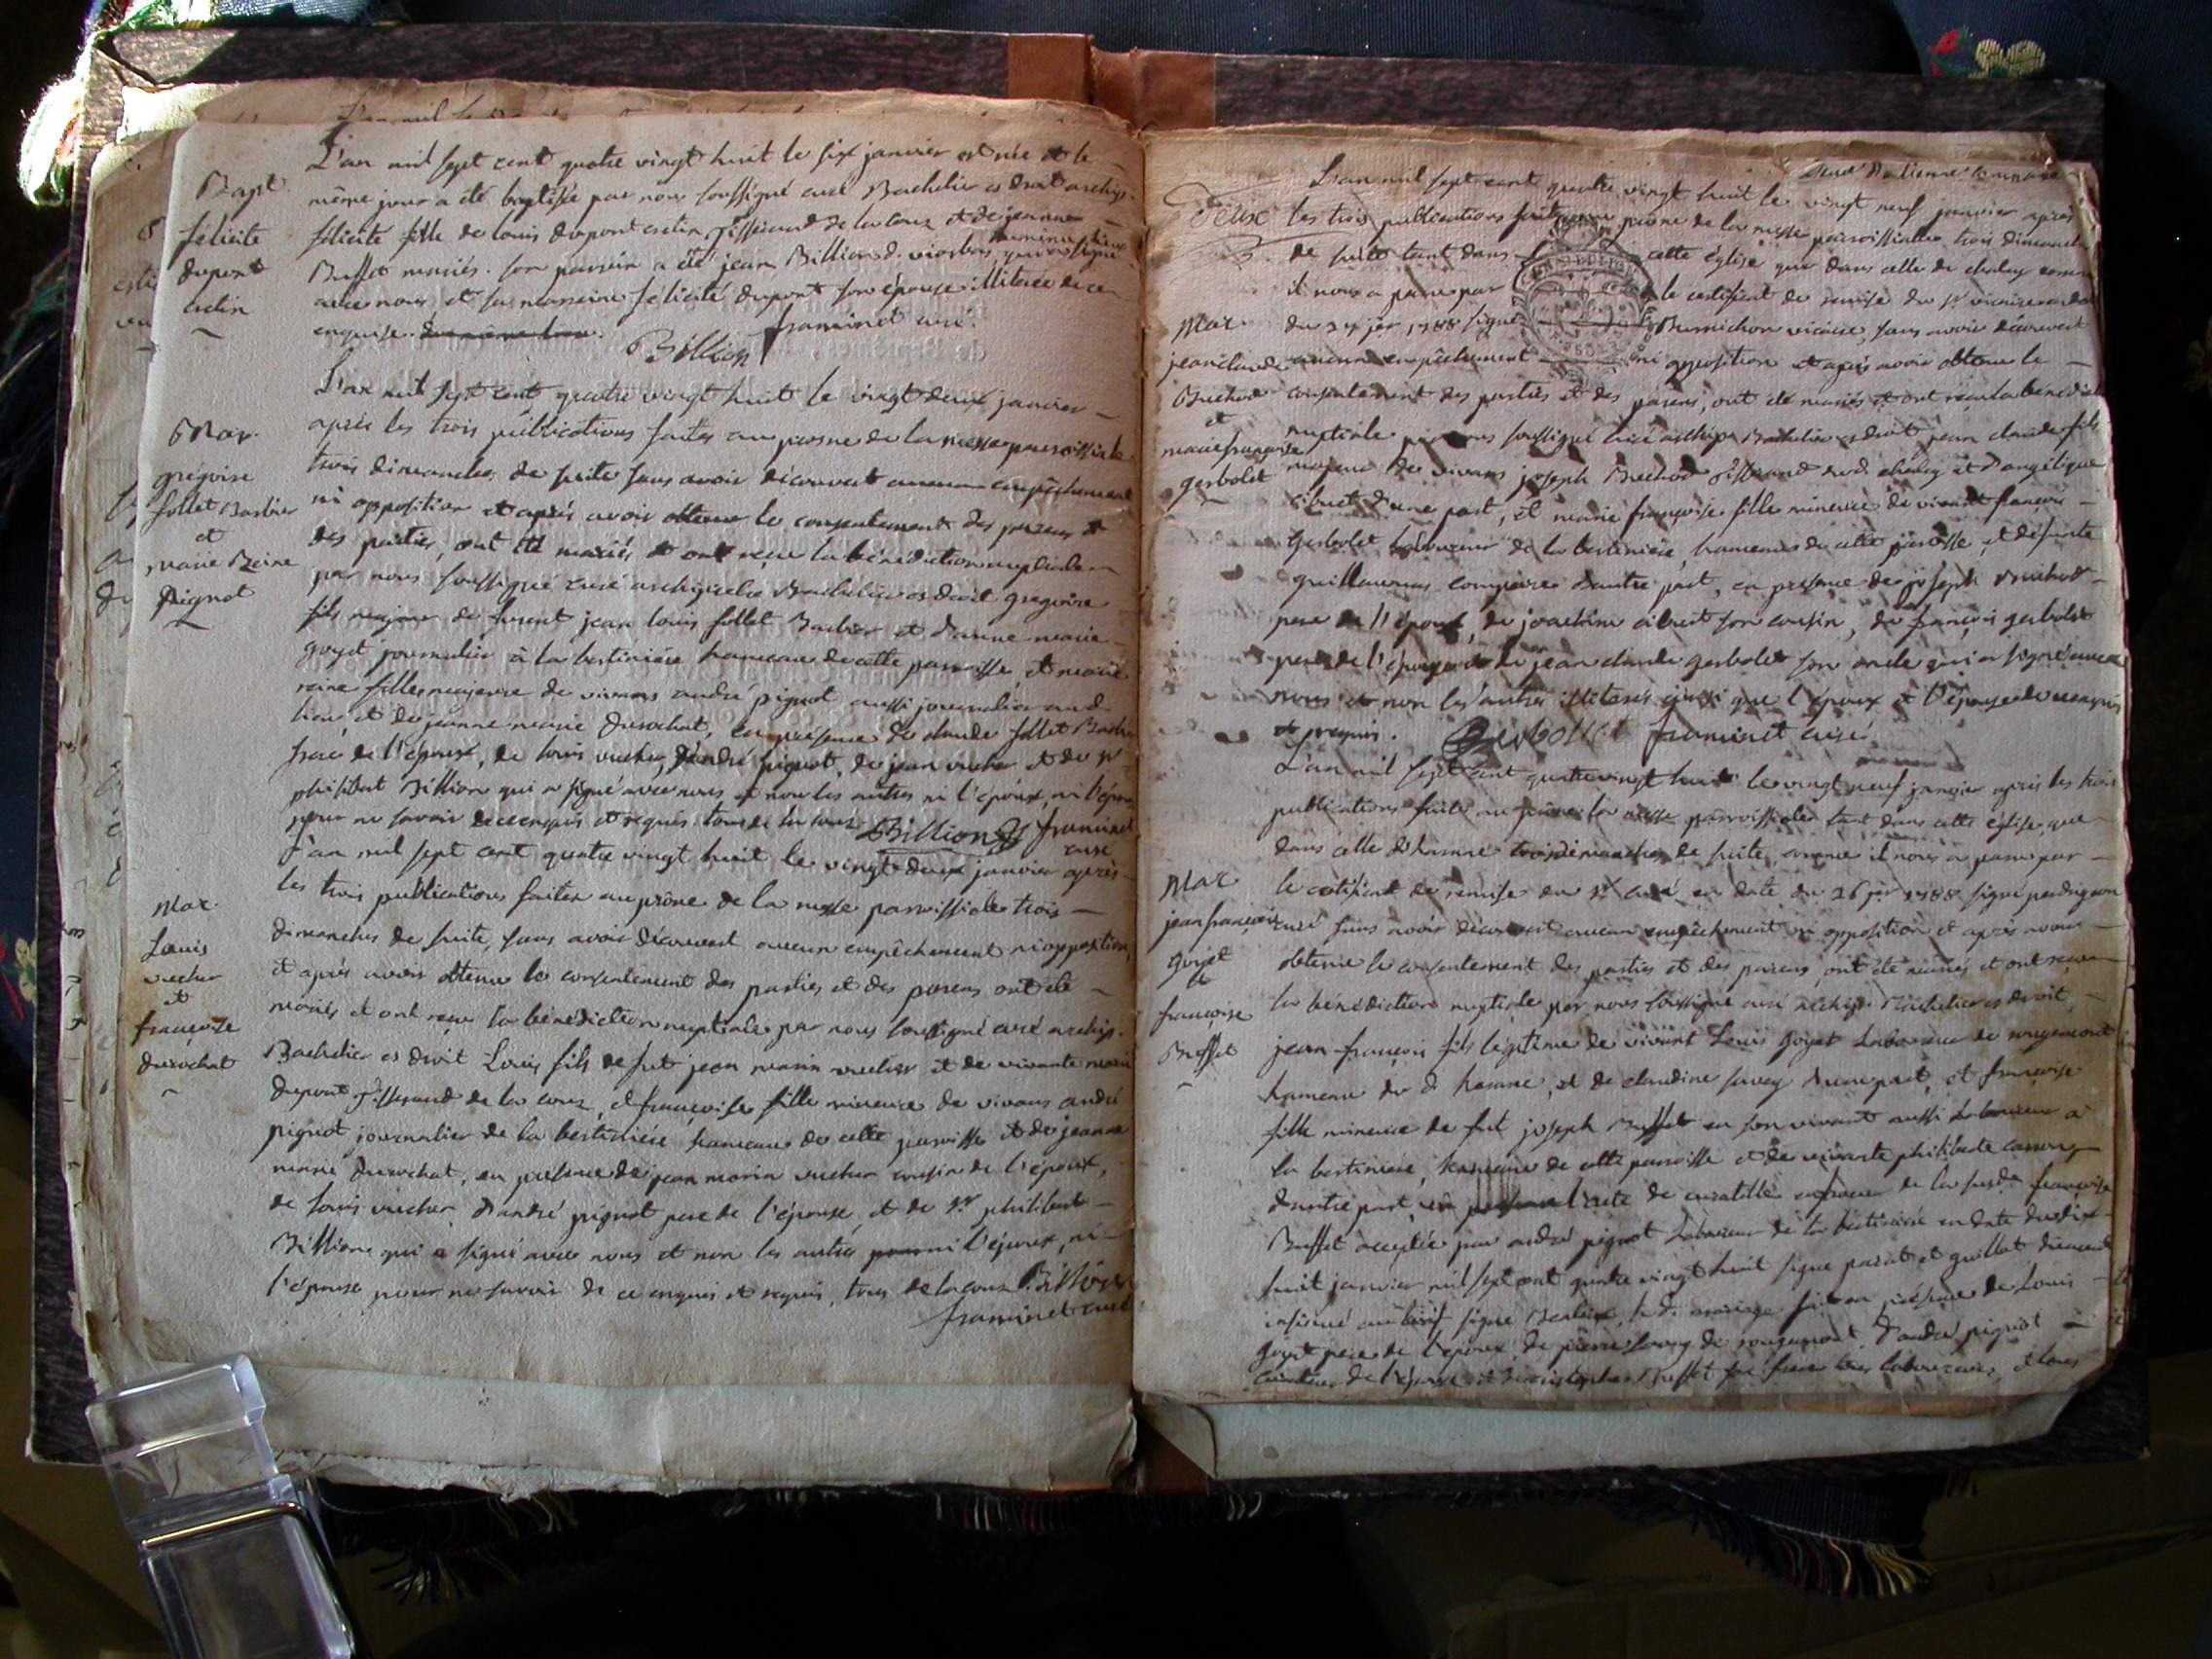 Bapt.
félicité
dupont
esclin
L'an mil sept cent quatre vingt huit le six janvier est née et le
même jour a été baptisée par nous soussigné curé Bachelier es droit archip.
félicité fille de louis dupont esclin tisserand de la couz et de jeanne
Buffet mariés. son parrain a été jean Billion
avec nous et sa marraine félicité dupont son épouse illiterée de ce
enquise.
Billion framinet curé.
Mar.
grégoire
follet Barbier
et
marie Reine
pignot
L'an mil sept cent quatre vingt huit le vingt deux janvier
après les trois publications faites au prosne de la messe paroissiale
trois dimanches de suite sans avoir découvert aucun empêchement
ni opposition et après avoir obtenu le consentement des parens et
des parties, ont été mariés et ont reçu la bénédiction nuptiale
par nous soussigné curé archiprêtre Bachelier es droit grégoire
fils majeur de furent jean louis follet Barbier et d'anne marie
goyet journalier à la bertinière hameau de cette paroisse, et marie
reine fille majeure de vivans andré pignot aussi journalier aud.
lieu et de jeanne marie durochat, en présence de claude follet Barbier
frere de l'époux, de louis vucher, d'andré pignot, de jean vucher et de sr
philibert Billion qui a signé avec nous et non les autres ni l'époux, ni l'épouse
pour ne savoir de ce enquis et requis tous de la couz Billion framinet
curé
Mar.
Louis
vucher
et
françoise
durochat
L'an mil sept cent quatre vingt huit le vingt deux janvier après
les trois publications faites au prône de la messe paroissiale trois
dimanches de suite, sans avoir découvert aucun empêchement ni opposition,
et après avoir obtenu le consentement des parties et des parens ont été
mariés et ont reçu la bénédiction nuptiale par nous soussigné curé archip.
Bachelier es droit Louis fils de fut jean marin vucher et de vivante marie
dupont tisserand de la couz, et françoise fille mineure de vivans andré
pignot journalier de la bertinière hameau de cette paroisse et de jeanne
marie durochat, en présence de jean marin vucher cousin de l'époux,
de louis vucher, d'andré pignot pere de l'épouse, et de sr philibert
Billion qui a signé avec nous et non les autres ni l'époux, ni
l'épouse pour ne savoir de ce enquis et requis, tous de la couz Billion
framinet curé
Felix
Mar.
jean claude
Brechod
et
marie françoise
gerbolet
L'an mil sept cent quatre vingt huit le vingt neuf janvier après
les trois publications faites au prosne de la messe paroissiale trois dimanches
de suite tant dans cette église que dans celle de chaley comme
il nous a paru par le certificat de remise du sr vicaire
du 27 jer 1788 signé vicaire, sans avoir découvert
aucun empêchement ni opposition et après avoir obtenu le
consentement des parties et des parens, ont été mariés et ont reçu la bénédiction
nuptiale par nous soussigné curé archip. Bachelier es droit jean claude fils
majeur de vivans joseph Brechod tisserand dud. chaley et d'angélique
cibuet d'une part, et marie françoise fille mineure de vivant françois
gerbolet laboureur de la bertinière, hameau de cette paroisse, et défunte
d'autre part, en présence de joseph Brechod
pere de l'époux, de joachim cibuet son cousin, de françois gerbolet
pere de l'épouse et de jean claude gerbolet son oncle qui a signé avec
nous et non les autres illiterés ainsi que l'époux et l'épouse de ce enquis
et requis. Gerbollet framinet curé.
Mar.
jean françois
goyet
et
françoise
Buffet
L'an mil sept cent quatre vingt huit le vingt neuf janvier après les trois
publications faites au prône de la messe paroissiale tant dans cette église que
dans celle trois dimanches de suite, comme il nous a paru par
le certificat de remise du sr curé en date du 26 jer 1788 signé perdrigeon
curé sans avoir découvert aucun empêchement ni opposition et après avoir
obtenu le consentement des parties et des parens, ont été mariés et ont reçu
la bénédiction nuptiale par nous soussigné curé archip. Bachelier es droit
jean françois fils légitime de vivant Louis goyet laboureur de rougemont
hameau et de claudine savey d'une part, et françoise
fille mineure de fut joseph Buffet en son vivant aussi laboureur à
la bertinière, hameau de cette paroisse et de vivante philiberte
d'autre part, l'acte de curatelle en faveur de la susde françoise
Buffet acceptée par andré pignot laboureur de la bertinière en date du dix
huit janvier mil sept cent quatre vingt huit signé et guillot
insinué signé le d. mariage fait en présence de Louis
goyet pere de l'époux, de pierre savey de rougemont, d'andré pignot
curateur de l'épouse et Buffet son frere tous laboureurs, et tous